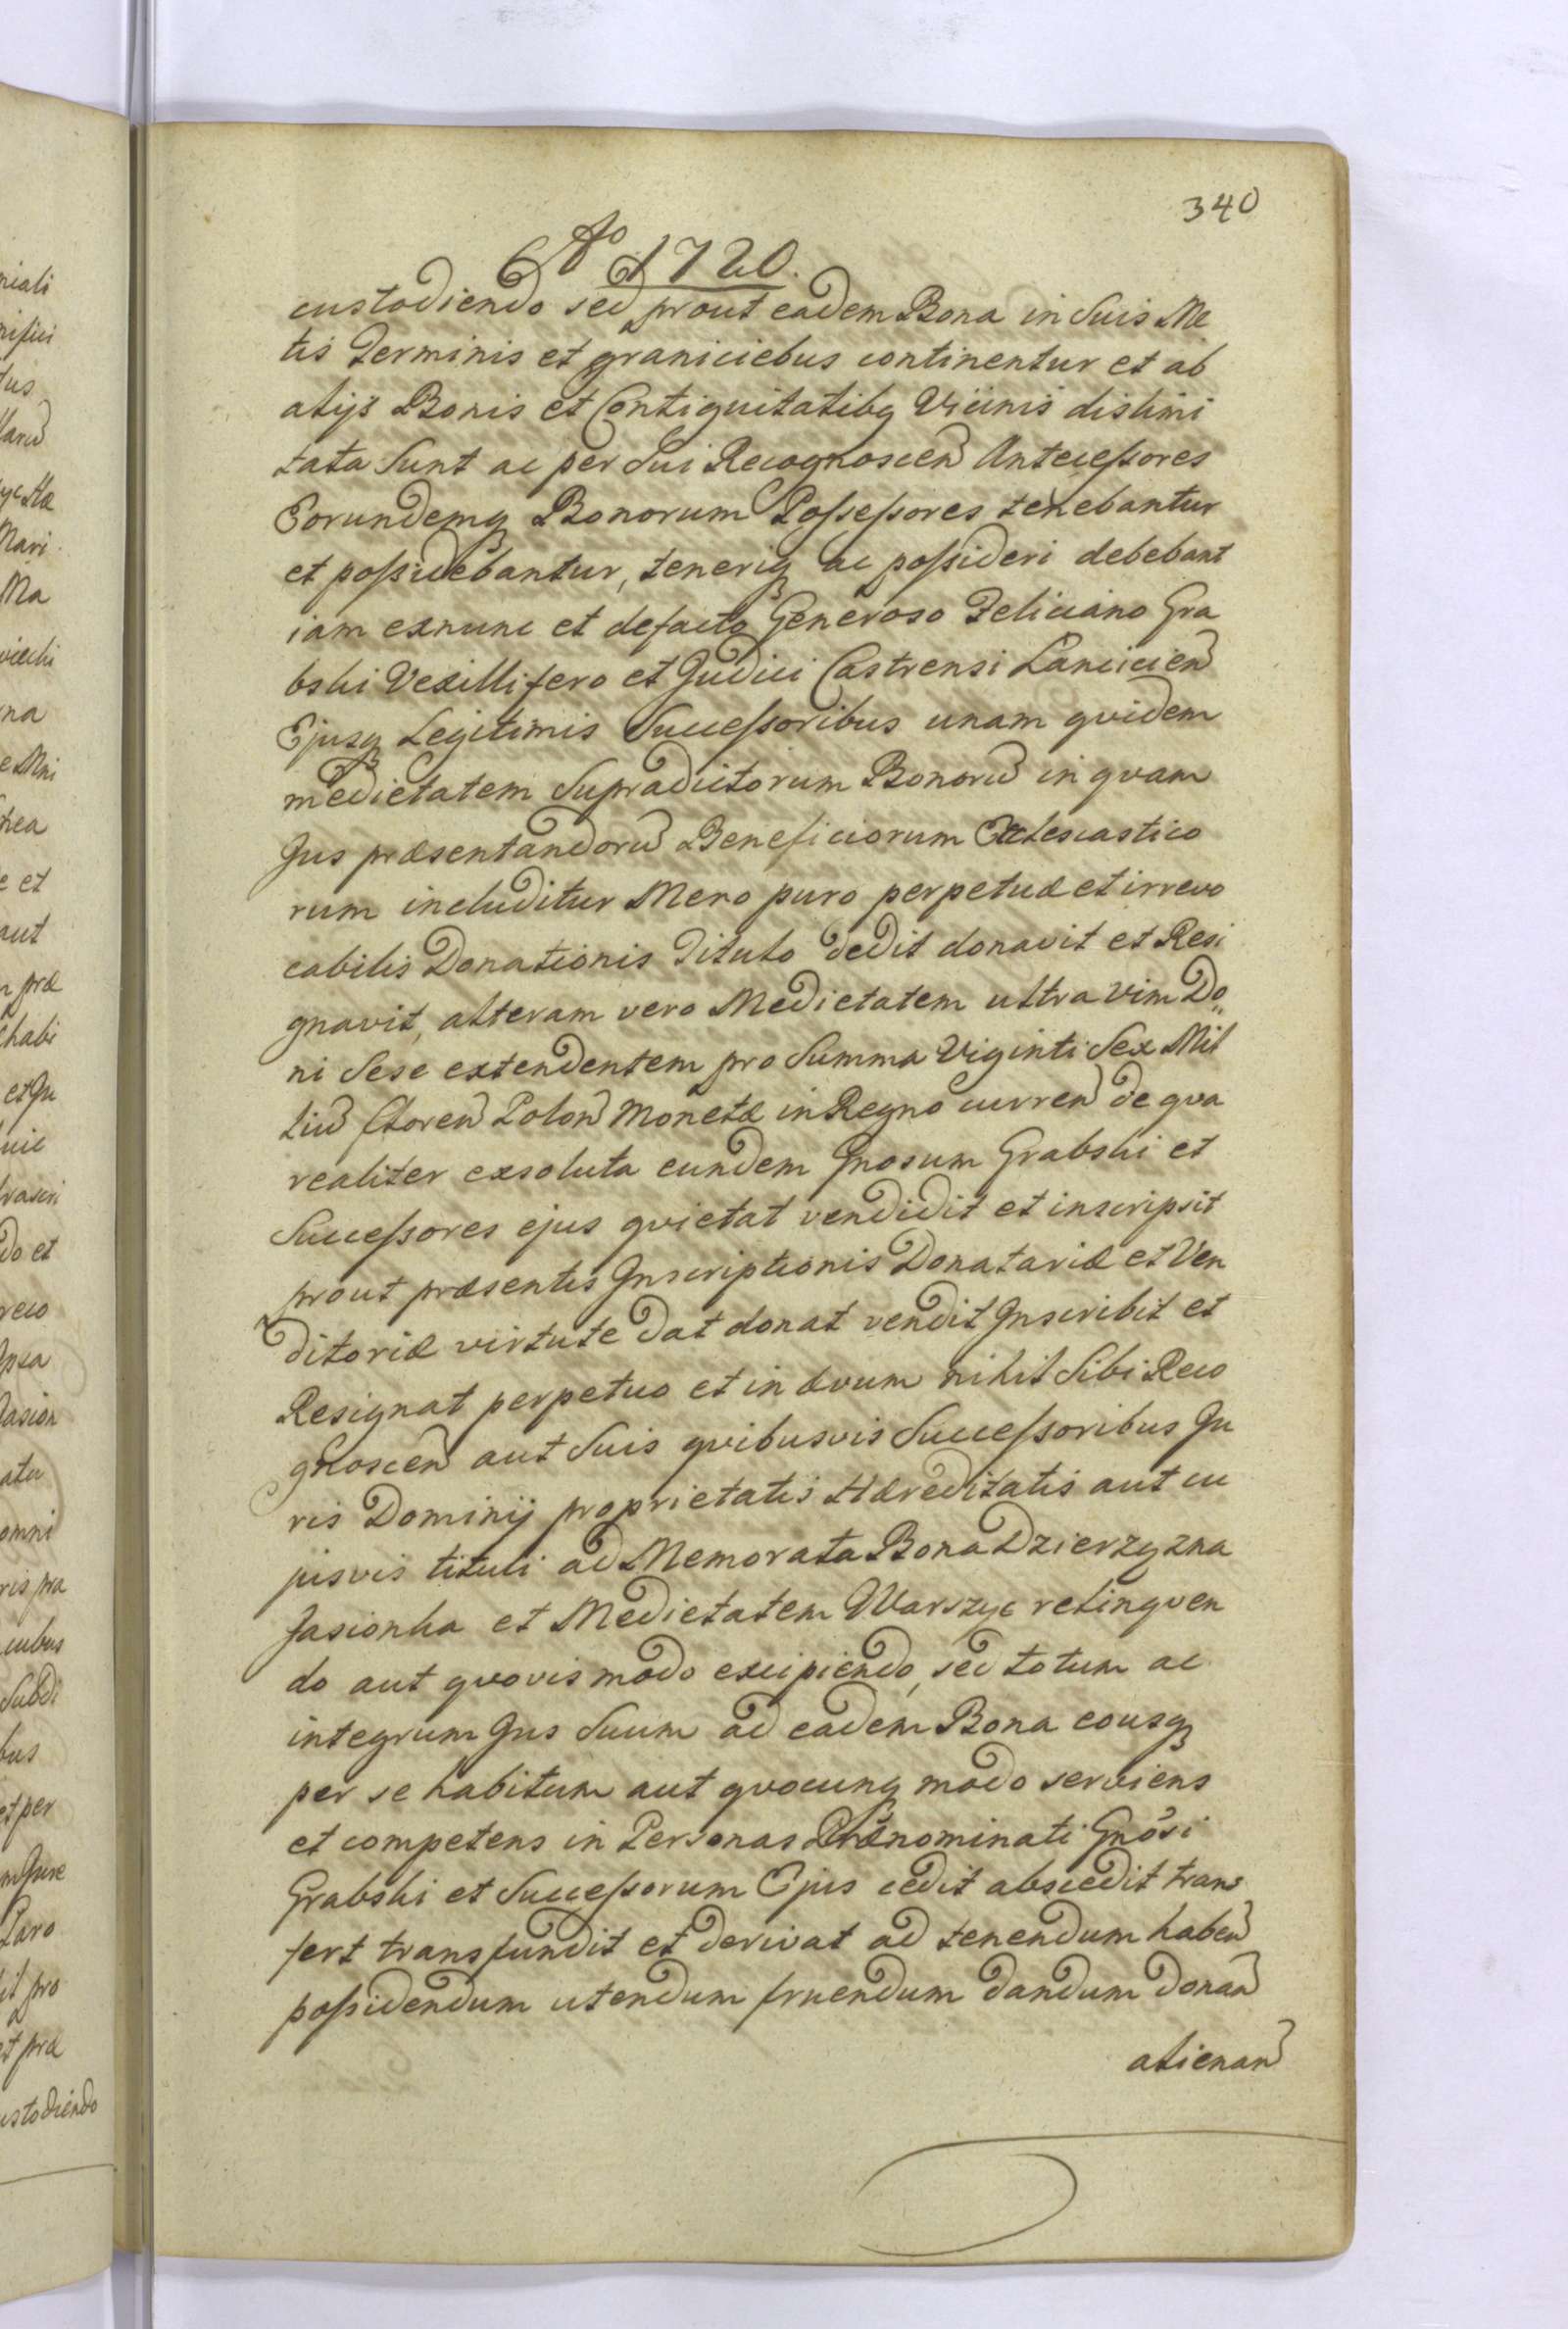 340
Ao 1720.
custodiendo sed prout eadem Bona in Suis Me
tis Terminis et graniciebus continentur et ab
alijs Bonis et Contiguitatibq Vicinis dislimi
tata Sunt ac per Sui Recognoscen Antecessores
Eorundemq Bonorum Possessores tenebantur
et possidebantur, teneriq ac possideri debebant
iam exnunc et defacto Generoso Feliciano Gra
bski Vexillifero et Judici Castrensi Lancicien
Ejusq Legitimis Successoribus unam quidem
medietatem Supradictorum Bonorū in quam
Jus præsentandorū Beneficiorum Ecclesiastico
rum includitur Mero puro perpetuæ et irrevo
cabilis Donationis Titulo dedit donavit et Resi
gnavit, alteram vero Medietatem ultra vim Do„
ni Sese extendentem pro Summa Viginti Sex Mil
liū floren Polon Monetæ in Regno curren de qva
realiter exsoluta eundem Gnosum Grabski et
Successores ejus qvietat vendidit et inscripsit
prout præsentis Inscriptionis Donatariæ et Ven
ditoriæ virtute dat donat vendit Inscribit et
Resignat perpetuo et in ævum nihil Sibi Reco
gnoscen aut Suis qvibusvis Successoribus Ju
ris Dominij proprietatis Hæreditatis aut cu
jusvis tituli ad Memorata Bona Dzierzązna
Jasionka et Medietatem Warszyc relinqven
do aut qvovis modo excipiendo, sed totum ac
integrum Jus Suum ad eadem Bona eousq
per se habitum aut qvocunq modo serviens
et competens in Personas Prænominati Gnosi
Grabski et Successorum Ejus cedit abscedit trans
fert transfundit et derivat ad tenendum haben
possidendum utendum fruendum dandum donan
alienan